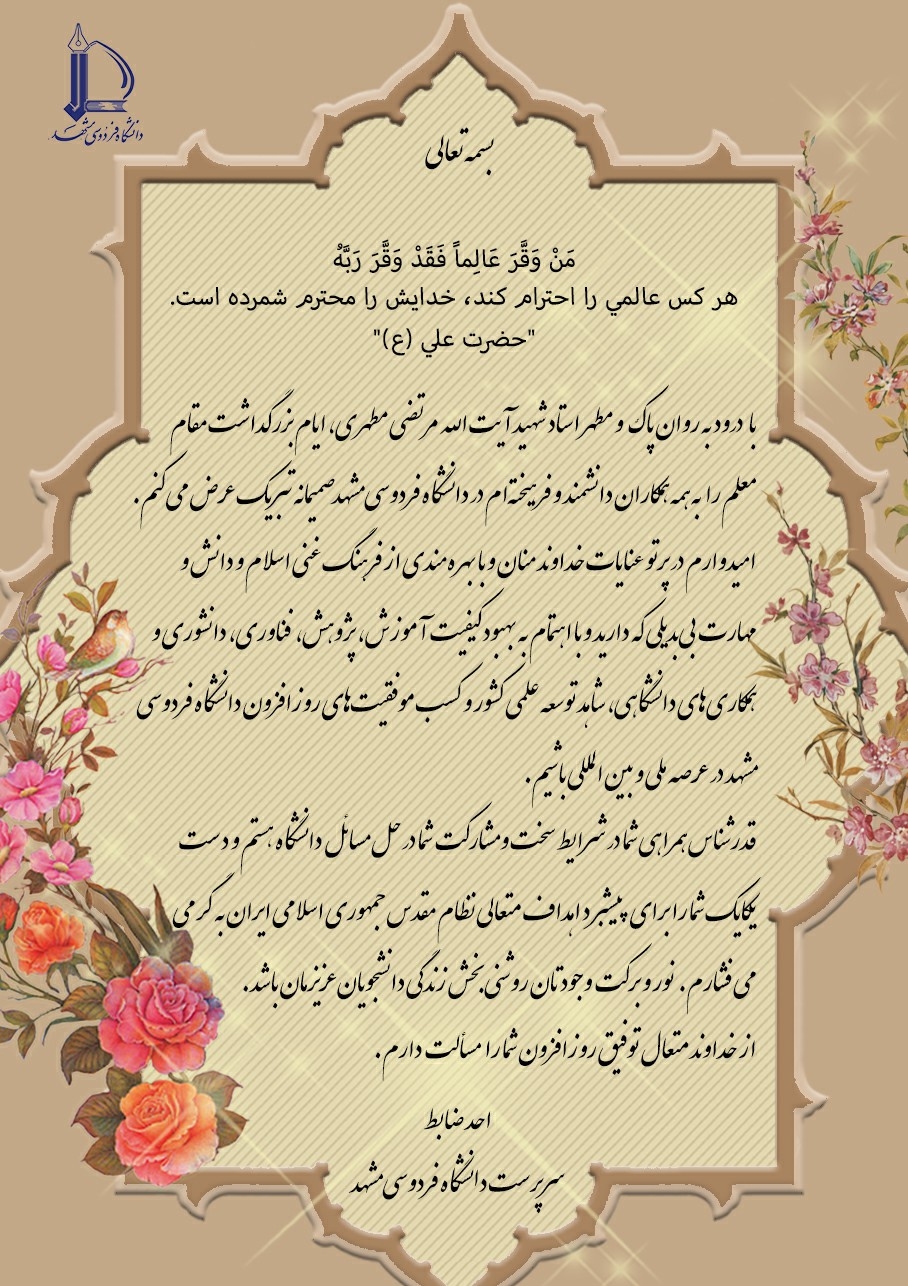 دانشگاه فردوسی مشهد
بسمه تعالی
مَنْ وَقَّرَ عَالِماً فَقَدْ وَقَّرَ رَبَّهُ
هر کس عالمي را احترام کند، خدایش را محترم شمرده است.
"حضرت علي (ع)"
با درود به روان پاک و مطهر استاد شهید آیت الله مرتضی مطهری، ایام بزرگداشت مقام
معلم را به همه همکاران دانشمند و فرهیخته‌ام در دانشگاه فردوسی مشهد صمیمانه تبریک عرض می کنم.
امیدوارم در پرتو عنایات خداوند منان و با بهره مندی از فرهنگ غنی اسلام و دانش و
مهارت بی‌بدیلی که دارید و با اهتمام به بهبود کیفیت آموزش، پژوهش، فناوری، دانشوری و
همکاری های دانشگاهی، شاهد توسعه علمی کشور و کسب موفقیت‌های روز افزون دانشگاه فردوسی
مشهد در عرصه ملی و بین المللی باشیم.
قدرشناس همراهی شما در شرایط سخت و مشارکت شما در حل مسائل دانشگاه هستم و دست
یکایک شما را برای پیشبرد اهداف متعالی نظام مقدس جمهوری اسلامی ایران به گرمی
می فشارم. نور و برکت وجودتان روشنی بخش زندگی دانشجویان عزیزمان باشد.
از خداوند متعال توفیق روز افزون شما را مسألت دارم.
احد ضابط
سرپرست دانشگاه فردوسی مشهد